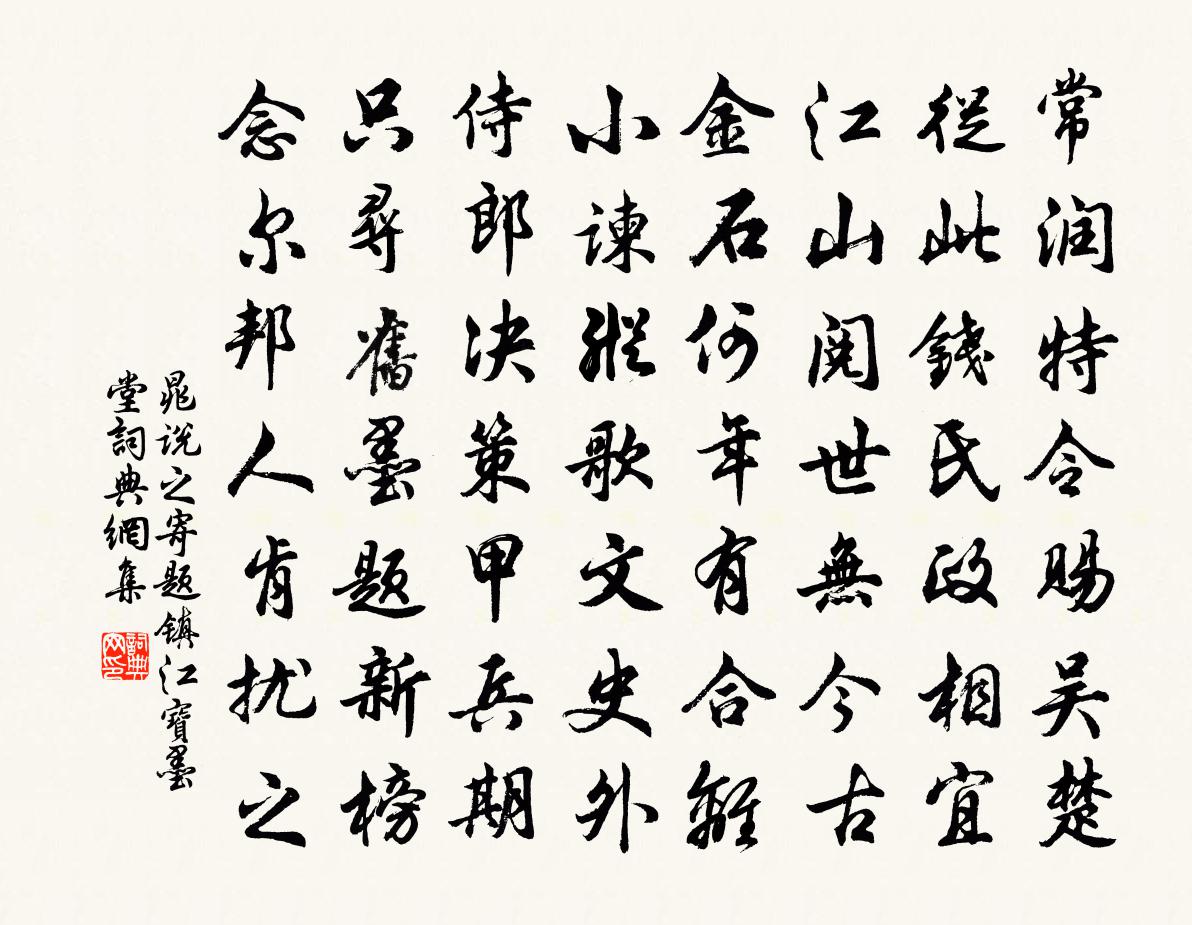 常润特令賜吴楚
從此錢民政相宜
江山閱世無今古
金石何年有合離
小諫縱歌文史外
侍郎决策甲兵期
只尋舊墨题新榜
念尔邦人肯扰之
晁说之寄题鎮江寶墨
堂詞典網集
詞典网印